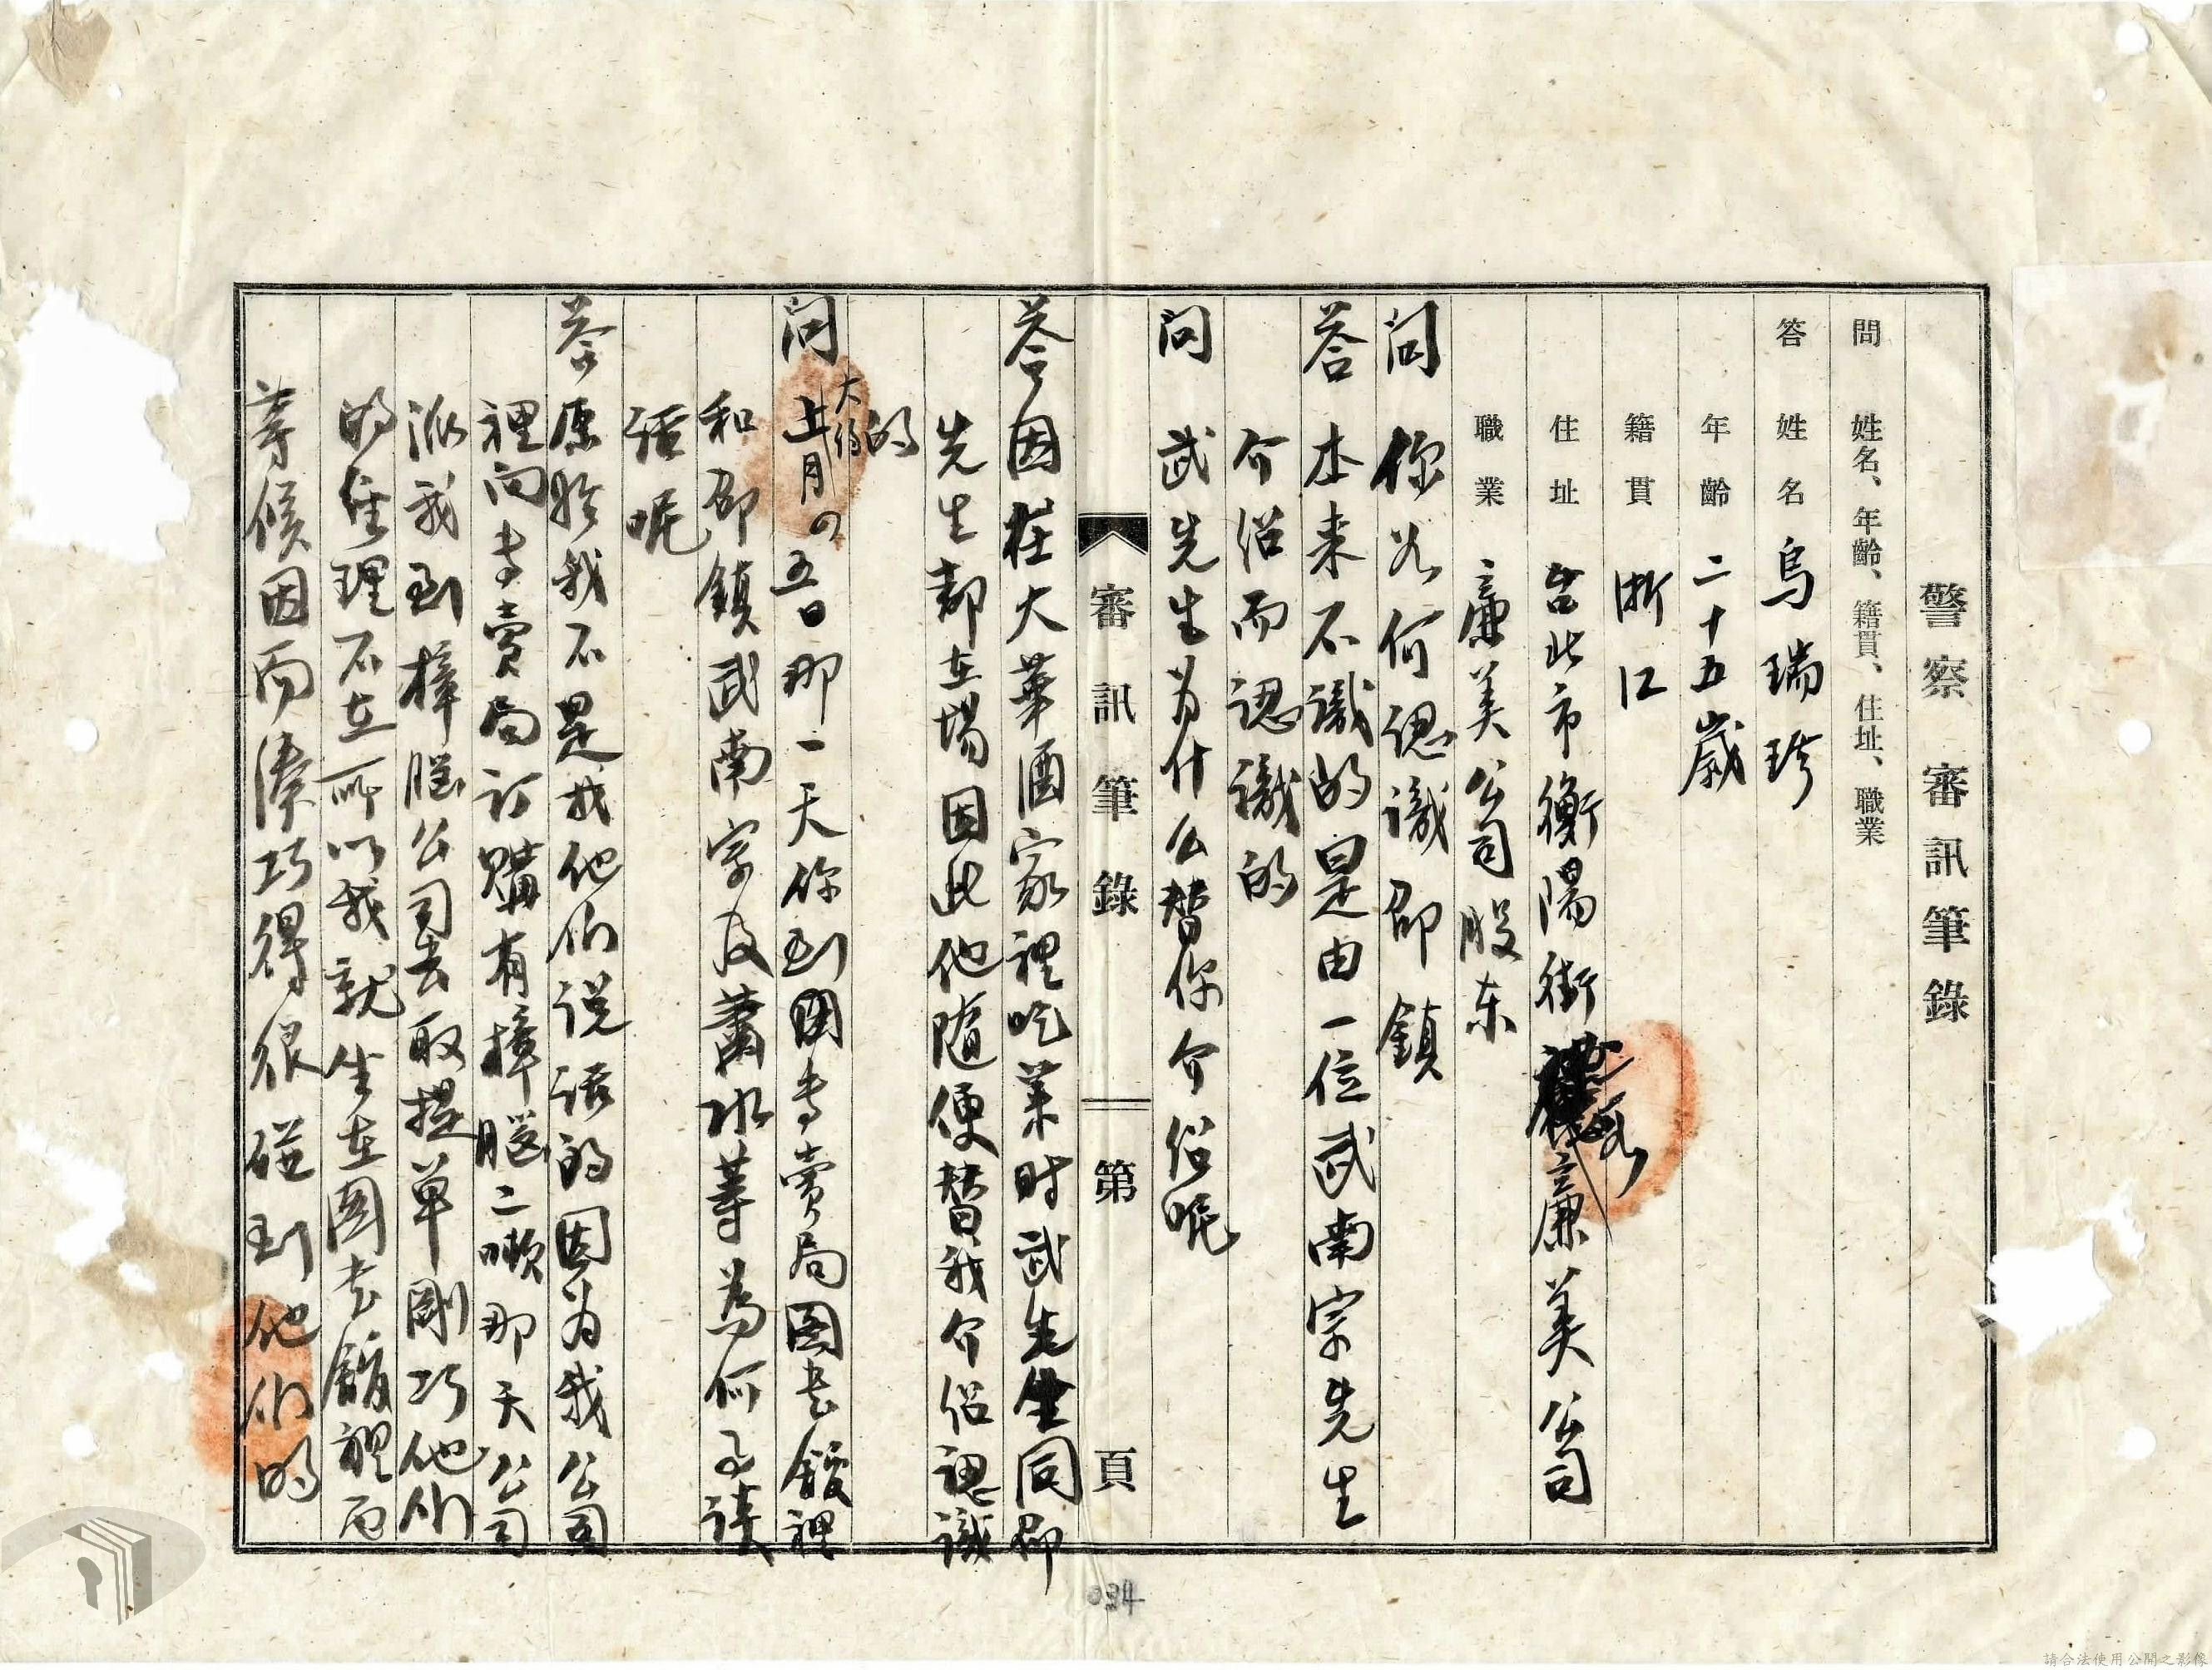 警察審訊筆錄
問 姓名、年齡、籍貫、住址、職業
答 姓名 烏瑞珍
年齡 二十五歲
籍貫 浙江
住址 台北市衡陽街廉美公司
職業 廉美公司股东
问 你如何認識邵鎮
答 本来不識的是由一位武南宗先生
介绍而認識的
问 武先生为什么替你介绍呢
審訊筆錄 第 頁
答 因在大華酒家裡吃菜时武先生同邵
先生都在場因此他随便替我介绍認識
的
问 大約上月四五日那一天你到国专賣局图书馆裡
和邵鎮武南宗及蕭冰等為何事談
話呢
答 原於我不是找他们说话的因为我公司
裡向专賣局订購有樟腦二噸那天公司
派我到樟腦公司去取提单剛巧他们
的經理不在所以我就坐在图书館裡面
等候因而湊巧得很碰到他们的
034
請合法使用公開之影像